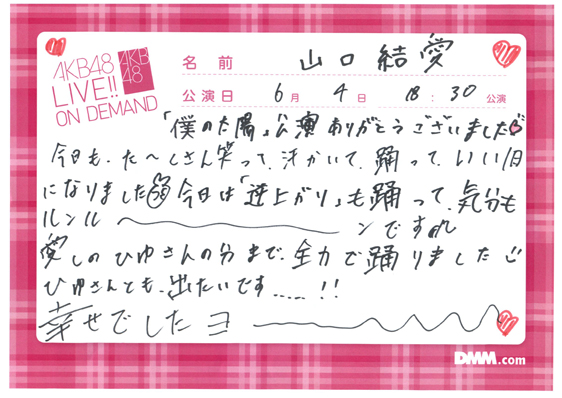 AKB48
LIVE!!
ON DEMAND
AKB
48
名前 山口結愛
公演日 6月 4日 18:30公演
「僕の太陽」公演ありがとうございました
今日も、た〜くさん笑って、汗かいて、踊って、いい1日
になりました 今日は「逆上がり」も踊って、気分も
ルンル〜ンです♪
愛しのひゆさんの分まで、全力で踊りました
ひゆさんとも、出たいです.....!!
幸せでしたヨ〜
DMM.com